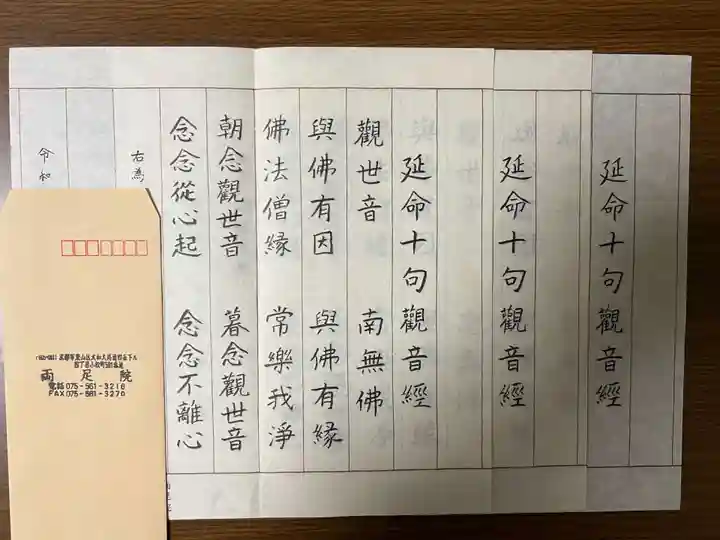 延命十句觀音經
延命十句觀音經
延命十句觀音經
觀世音 南無佛
與佛有因 與佛有縁
佛法僧縁 常樂我淨
朝念觀世音 暮念觀世音
念念從心起 念念不離心
右為
令和
両足院
電話 075-561-3216
FAX 075-561-3270